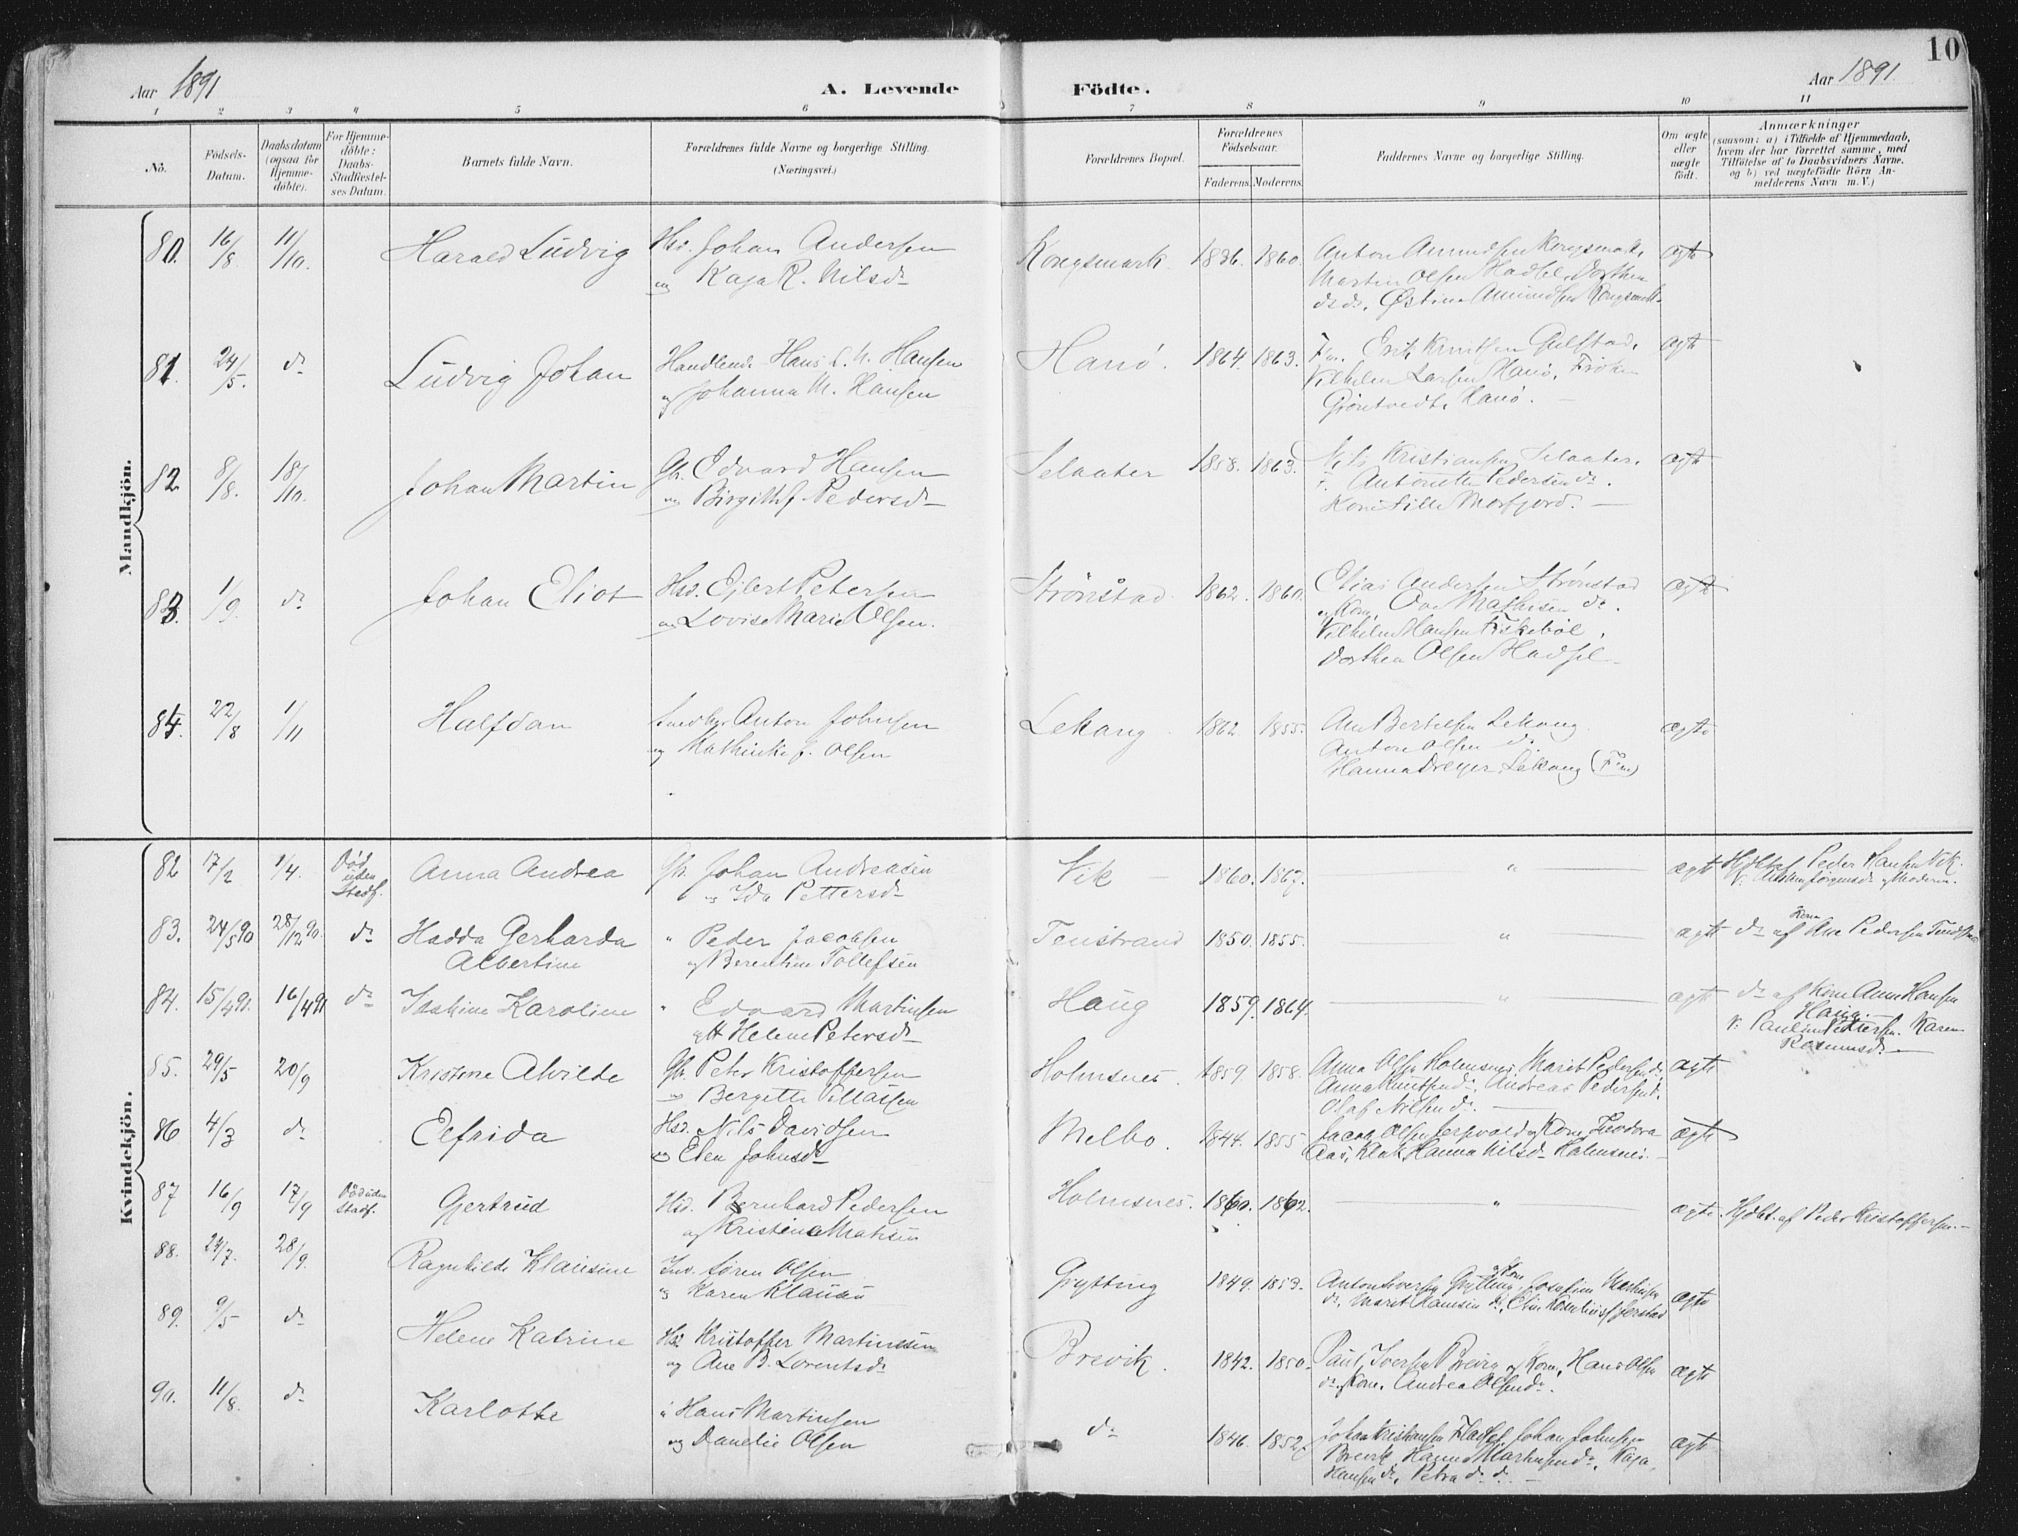 10
Aar 1891
A. Levende Födte.
Aar 1891.
1 2 3 4 5 6 7 8 9 10 11
No.
Födsels-Datum.
Daabsdatum (ogsaa for Hjemmedöbte).
For Hjemmedöbte: Daabs-Stadfæstelses Datum.
Barnets fulde Navn.
Forældrenes fulde Navne og borgerlige Stilling.
(Næringsvei.)
Forældrenes Bopæl.
Forældrenes Födselsaar.
Faderens. Moderens.
Faddernes Navne og borgerlige Stilling.
Om ægte eller uægte födt.
Anmærkninger
(saasom: a) i Tilfælde af Hjemmedaab, hvem der har forrettet samme, med Tilföielse af to Daabsvidners Navne. og b) ved uægtefödte Börn Anmelderens Navn m. V.)
Mandkjön.
80. 16/8 11/10. Harald Ludvig Hsd. Johan Andersen Kongsmark. 1836. 1860. Anton Amundsen Kongsmark, ægte
og Kaja R. Nilsd. Martin Olsen Hadsel, Dorthea
do do, Østina Amundsen Kongsmark
81. 24/5. do Ludvig Johan Handlende Hans C. N. Hansen Hanö. 1864. 1863. Fm. Erik Knutsen Gulstad, ægte
og Johanna M. Hansen Vilhelm Larsen Hanö, Fröken
Gröntvedt, Hanö.
82 8/8. 18/10. Johan Martin Gbr. Edvard Hansen Selaater 1858. 1863. Nils Kristiansen Selaater, ægte
og Birgith f. Pedersd. Antonette Pedersen do.
Morfjord.
83. 1/9. do Johan Eliot Hsd. Ejlert Petersen Strönstad 1862. 1860. Elias Andersen Strönstad ægte
og Lovise Marie Olsen. og Kone, Ove Mathisen do.
Vilhelm Hansen Fiskeböl,
Dorthea Olsen Hadsel
84. 22/8 1/11 Halfdan Anton Johnsen Lekang 1862 1855. Ane Bertelsen Lekang ægte
og Mathinka f. Olsen Anton Olsen do.
Hanna Dreyer, Lekang (Fm)
Kvindekjön.
82 17/2 1/4. Död uden Stadf. Anna Andrea Gbr. Johan Andreasen Vik 1860. 1867. " ægte Hjdbt. af Peder Hansen Vik.
og Ida Pettersd.
83. 24/5 90 28/12 90. do Hadda Gerharda " Peder Jacobsen Tenstrand 1850. 1855. " ægte do af Kone Ane Pedersen
Albertine og Berentine Tollefsen
84. 15/4 91. 16/4 91 do Karoline " Edvard Martinsen Haug 1859. 1864. " ægte do af Kone Anne Hansen
og Helene Petersd. Haug.
V. Pauline Pettersen. Karen
Rasmusd.
85. 29/5 20/9 Kristine Alvilde Gbr. Peter Kristoffersen Holmsnes. 1859. 1858. Anna Olsen Holmsnes, Maret Pedersen do, ægte
og Bergette Anna Knutsen do, Andreas Pedersen do.
Olaf Nilsen do.
86 4/3 do Elfrida Hsd. Nils Davidsen Melbo. 1844. 1855 Jacob Olsen og Kone, Teodora ægte
og Elen Johnsd. Hanna Nilsd. Holmsnes.
87 16/9 17/9 Död uden Stadf. Gjertrud Hsd. Bernhard Pedersen Holmsnes. 1860. 1862. " ægte. Hjdbt. af Peder Kristoffersen.
og Kristine Matisen
88. 24/7. 28/9. Ragnhilde Klausine Ind. Sören Olsen Grytting 1849. 1853. Anton Iversen Grytting og Kone, Josefine Mathisen ægte
og Karen Klausen do, Maret Hansen do,
89. 9/5 do Helene Katrine Hsd. Kristoffer Martinesen Brevik. 1842. 1850. Paul Iversen og Kone, Hans Olsen ægte
og Ane B. Lorentsd. do, og Kone. Andrea Olsen do.
90. 11/8. do Karlotte " Hans Martinsen do 1846. 1852. Johan Kristiansen Johan Johnsen ægte
og Danelie Olsen Brevik, Hanna Martinsen do, Kaja
Hansen do, Petra do do